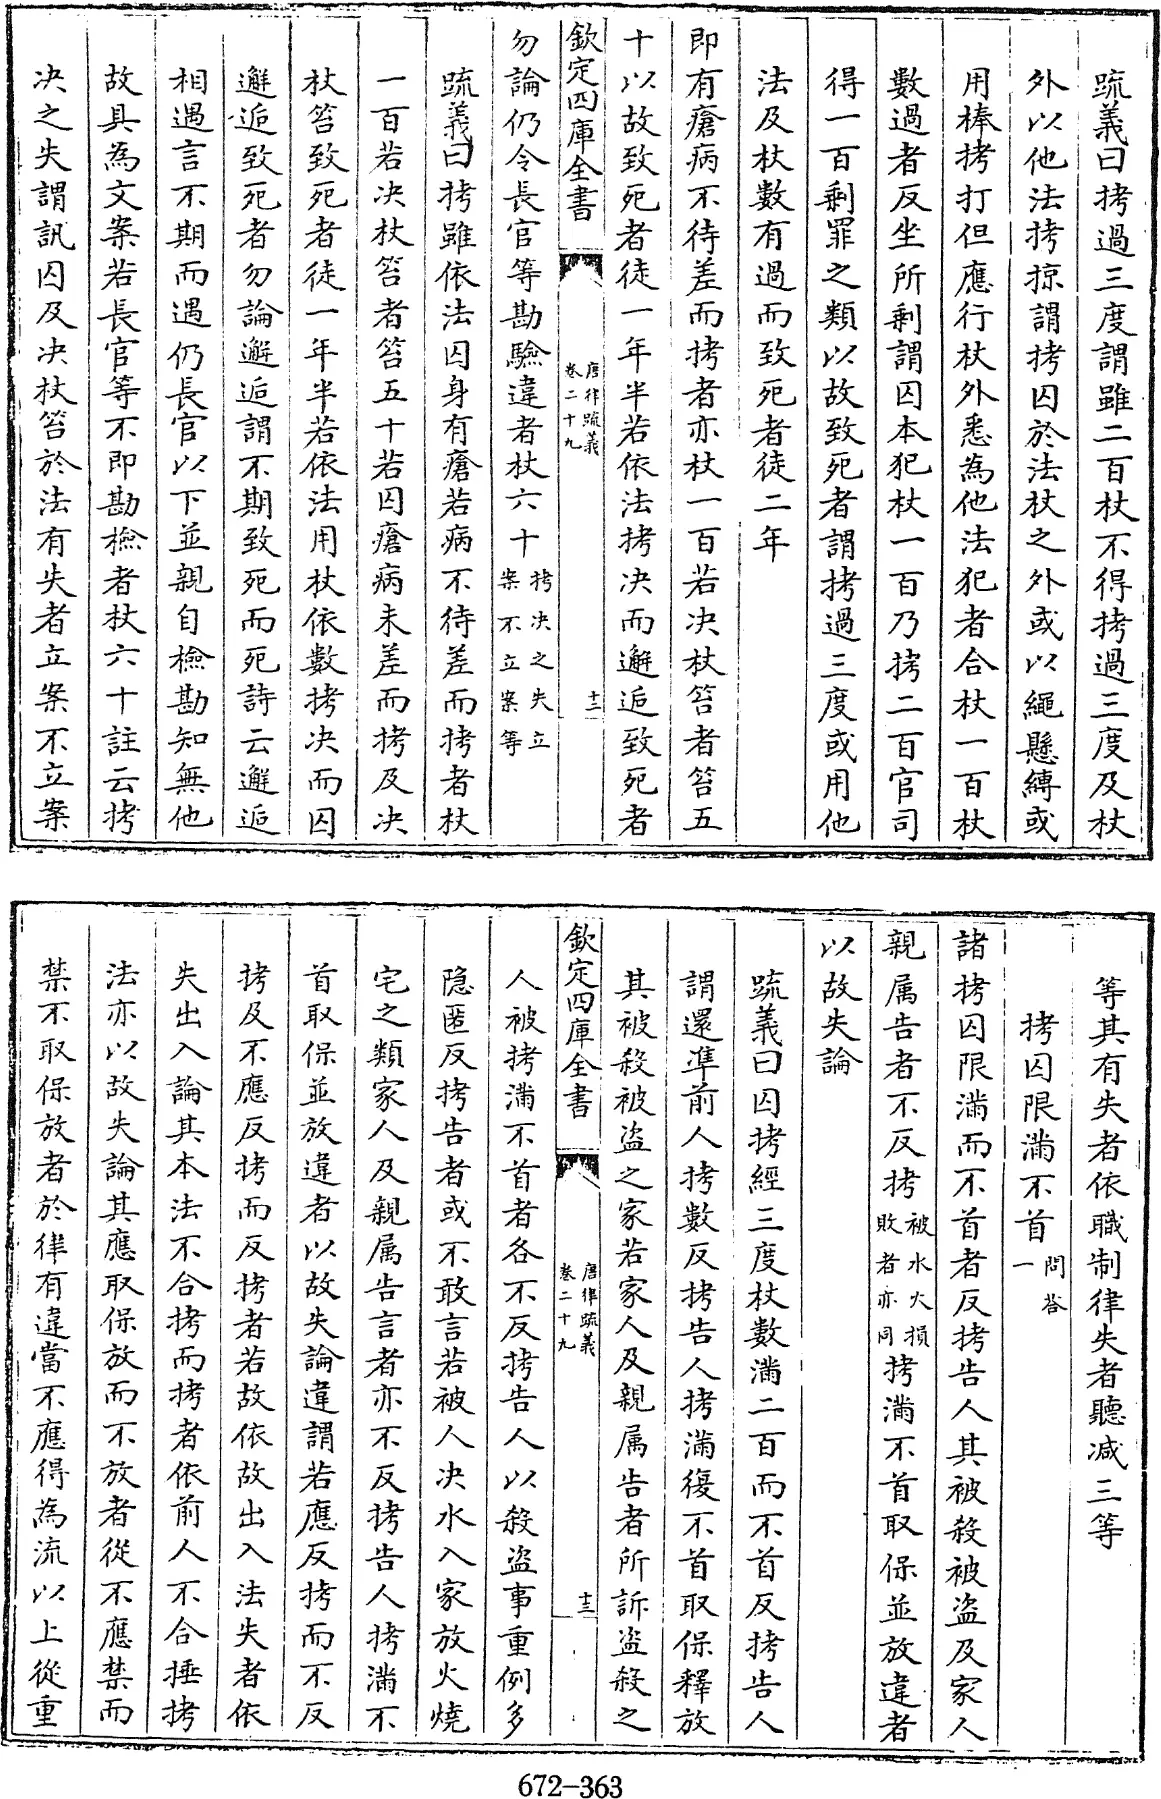 疏義曰拷過三度謂雖二百杖不得拷過三度及杖
外以他法拷掠謂拷囚於法杖之外或以繩懸縛或
用棒拷打但應行杖外悉為他法犯者合杖一百杖
數過者反坐所剩謂囚本犯杖一百乃拷二百官司
得一百剩罪之類以故致死者謂拷過三度或用他
法及杖數有過而致死者徒二年
即有瘡病不待差而拷者亦杖一百若決杖笞者笞五
十以故致死者徒一年半若依法拷决而邂逅致死者
欽定四庫全書
唐律疏義
卷二十九
十三
勿論仍令長官等勘驗違者杖六十
拷决之失立
案不立案等
疏義曰拷雖依法囚身有瘡若病不待差而拷者杖
一百若决杖笞者笞五十若囚瘡病未差而拷及决
杖笞致死者徒一年半若依法用杖依數拷决而囚
邂逅致死者勿論邂逅謂不期致死而死詩云邂逅
相遇言不期而遇仍長官以下並親自檢勘知無他
故具為文案若長官等不即勘檢者杖六十註云拷
决之失謂訊囚及决杖笞於法有失者立案不立案
等其有失者依職制律失者聽减三等
拷囚限滿不首
問答
一
諸拷囚限滿而不首者反拷告人其被殺被盜及家人
親属告者不反拷
被水火損
敗者亦同
拷滿不首取保並放違者
以故失論
疏義曰囚拷經三度杖數滿二百而不首反拷告人
謂還凖前人拷數反拷告人拷滿復不首取保釋放
其被殺被盜之家若家人及親属告者所訴盜殺之
欽定四庫全書
唐律疏義
卷二十九
十三
人被拷滿不首者各不反拷告人以殺盜事重例多
隱匿反拷告者或不敢言若被人决水入家放火燒
宅之類家人及親属告言者亦不反拷告人拷滿不
首取保並放違者以故失論違謂若應反拷而不反
拷及不應反拷而反拷者若故依故出入法失者依
失出入論其本法不合拷而拷者依前人不合捶拷
法亦以故失論其應取保放而不放者從不應禁而
禁不取保放者於律有違當不應得為流以上從重
672-363